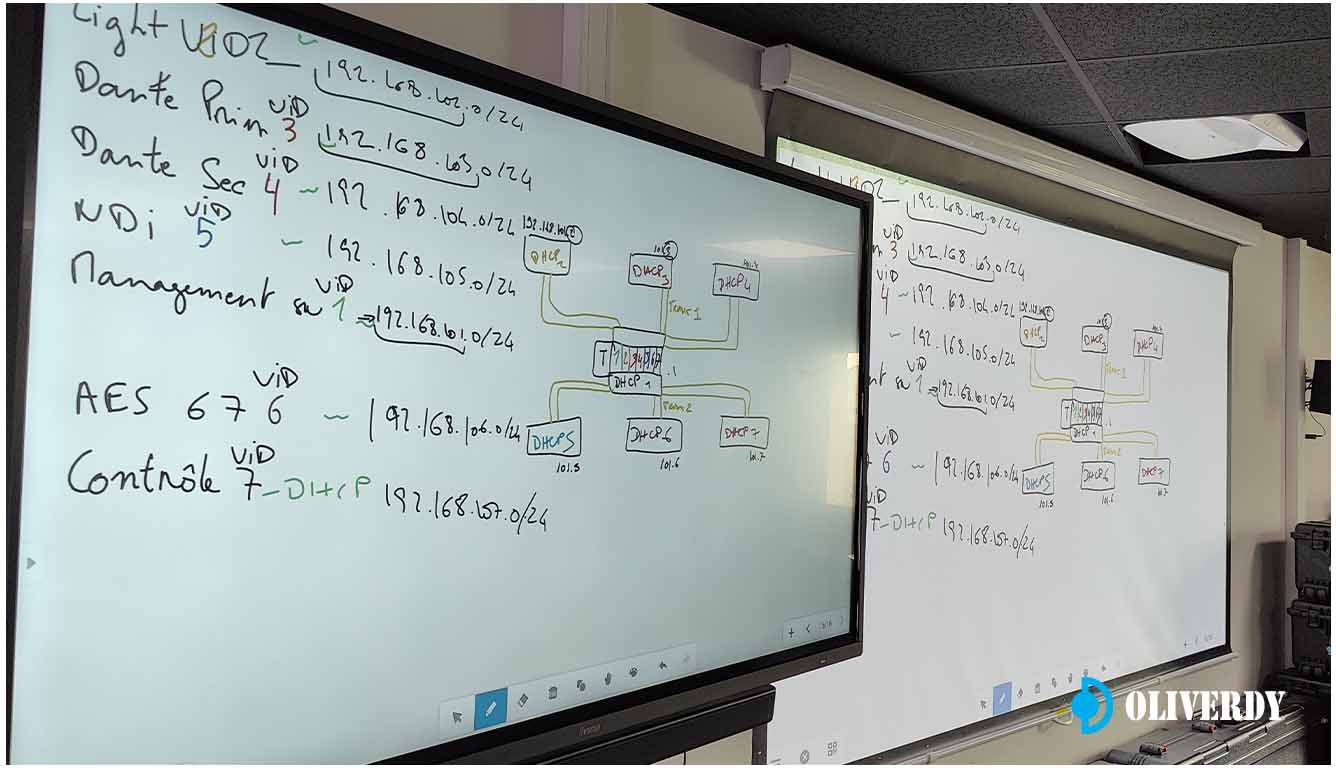 Light VID2 ~ 192.168.102.0/24
Dante Prim VID 3 192.168.103.0/24
Dante Sec VID 4 ~ 192.168.104.0/24
NDi VID 5 ~ 192.168.105.0/24
Management sw VID 1 192.168.101.0/24
AES 67 VID 6 ~ 192.168.106.0/24
Contrôle VID 7 - DHCP 192.168.157.0/24
DHCP2
DHCP3
DHCP4
T 1 2 3 4 5 6 7
.1
DHCP 1
DHCP5
DHCP6
DHCP7
101.5
101.6
101.7
192.168.102.0/24
3 192.168.103.0/24
VID
4 ~ 192.168.104.0/24
~ 192.168.105.0/24
VID
1 192.168.101.0/24
VID
6 ~ 192.168.106.0/24
7 - DHCP 192.168.157.0/24
DHCP2
DHCP3
DHCP4
DHCP 1
DHCP5
DHCP6
DHCP7
101.5
101.6
OLIVERDY